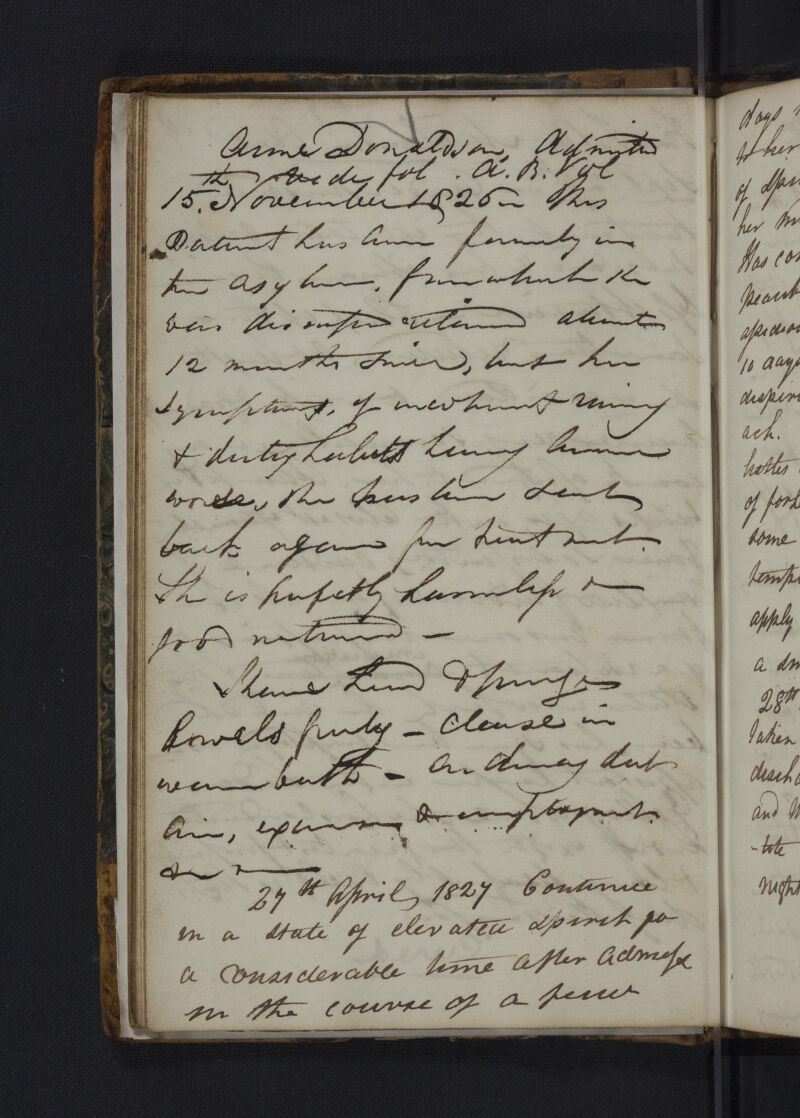 Anne Donaldson, Admitted
vide fol. A. B. Vol
15.th November 1826 - This
Patient has been formerly in
the asylum, from which she
was discharged relieved about
12 months since, but her
symptoms, of incoherent raving
& dirty habits having become
worse, she has been sent
back again for treatment.
She is perfectly harmless &
good natured -
Shave head & purge
Bowels freely - cleanse in
warm bath - ordinary diet
Air, exercise & employment
27th April, 1827 Continue
in a state of elevated spirit for
a considerable time after admission
in the course of a few
days
to her
of
her
Has
10 days
ach.
of
some
apply
a
28th
taken
and
night